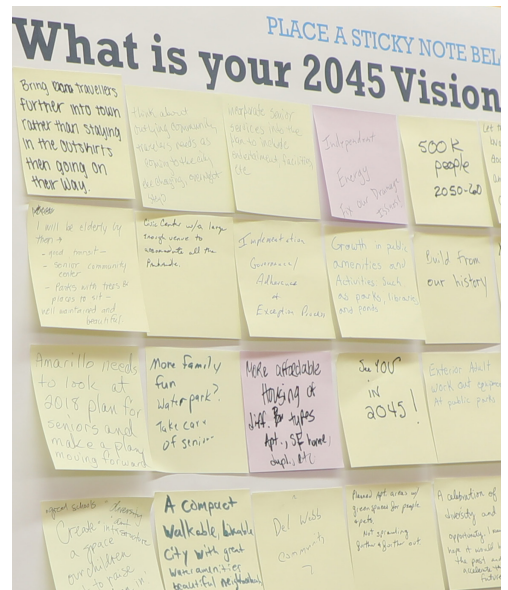 PLACE A STICKY NOTE BEL
What is your 2045 Vision
Bring more travellers
further into town
rather than staying
in the outskirts
then going on
their way.
think about
outlying community
needs as
services into the
plan to include
etc
Independent
Energy
Fix our Drainage
Issues!
500K
people
2050-60
I will be elderly by
then
- good transit -
- Senior community
center
- Parks with trees &
places to sit -
well maintained and
beautiful.
Civic Center w/a large
enough venue to
accommodate all the
Implementation
Governance/
Adherence
+
Exception Process
Growth in public
amenities and
Activities, such
as parks, library
and ponds
Build from
our history
Amarillo needs
to look at
2018 plan for
sensors and
make a plan
moving forward
More family
fun
Waterpark?
Take care
of senior
More affordable
Housing of
diff. types
Apt., SF home,
dupl., etc.
See YOU
IN
2045!
Exterior Adult
work out equipm
At public parks
schools
Create infrastructure
a space
our children
to raise
in
A compact
Walkable, bikeable
City with great
water amenities
beautiful neighborh
Del Webb
Community
?
Planned Apt. areas w/
greenspaces for people
+ pets
Not expanding
further & further out
A celebration of
diversity and
opportunity. I
hope it would
the past and
accelerate the
future